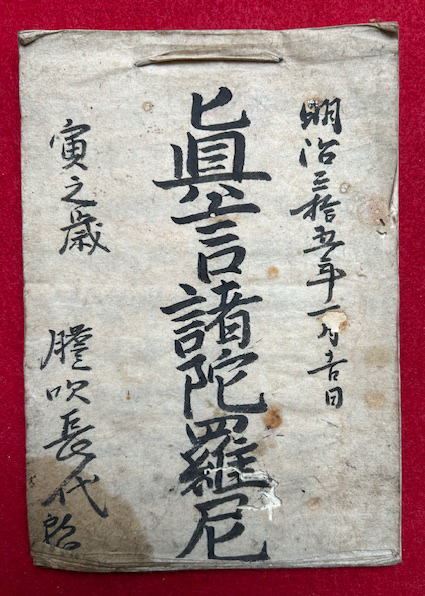 明治三拾五年一月吉日
眞言諸陀羅尼
寅之歳
吹長代